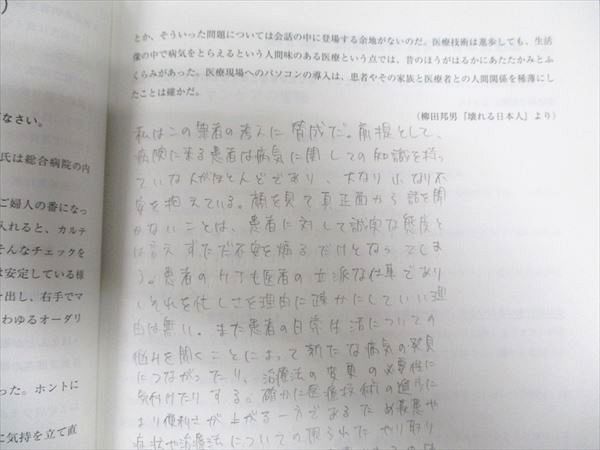 とか、そういった問題については会話の中に登場する余地がないのだ。医療技術は進歩しても、生活
像の中で病気をとらえるという人間味のある医療という点では、昔のほうがはるかにあたたかみとふ
くらみがあった。医療現場へのパソコンの導入は、患者やその家族と医療者との人間関係を稀薄にし
たことは確かだ。
(柳田邦男『壊れる日本人』より)
なさい。
氏は総合病院の内
ご婦人の番になっ
入れると、カルテ
そんなチェックを
は安定している様
を出し、右手でマ
わゆるオーダリ
った。ホントに
に気持を立て直
私はこの筆者の考えに賛成だ。前提として、
病院に来る患者は病気に関しての知識を持っ
ていな人がほとんどであり、大なり小なり不
安を抱えている。顔を見て真正面から話を聞
かないことは、患者に対して誠実な態度と
は言えずただ不安を煽るだけとなってしま
う。患者のケアも医者の立派な仕事であり
それを忙しさを理由に疎かにしていい理
由は無い。また患者の日常生活についての
悩みを聞くことによって新たな病気の発見
につながったり、治療法の変更の必要性に
気付けたりする。確かに医療技術の進歩に
より便利さが上がる一方であるため
症状や治療法についての限られたやり取り